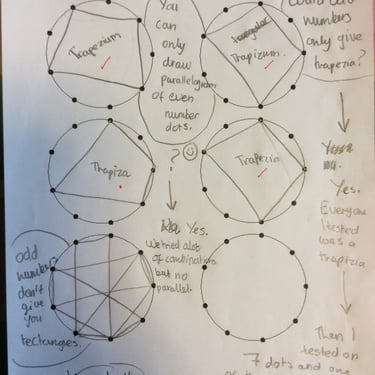 You
can
only
draw
parallelogram
of even
number
dots.
numbers
only give
trapezia?
Trapezium
Trapizum.
Trapiza
Trapezia
?
Yes.
We tried alot
of combinations
but no
parallel.
Yes.
Everyone
I tested
was a
traptzia
Then I
tested on
7 dots and one
odd
number?
don't
give
you
rectangles.